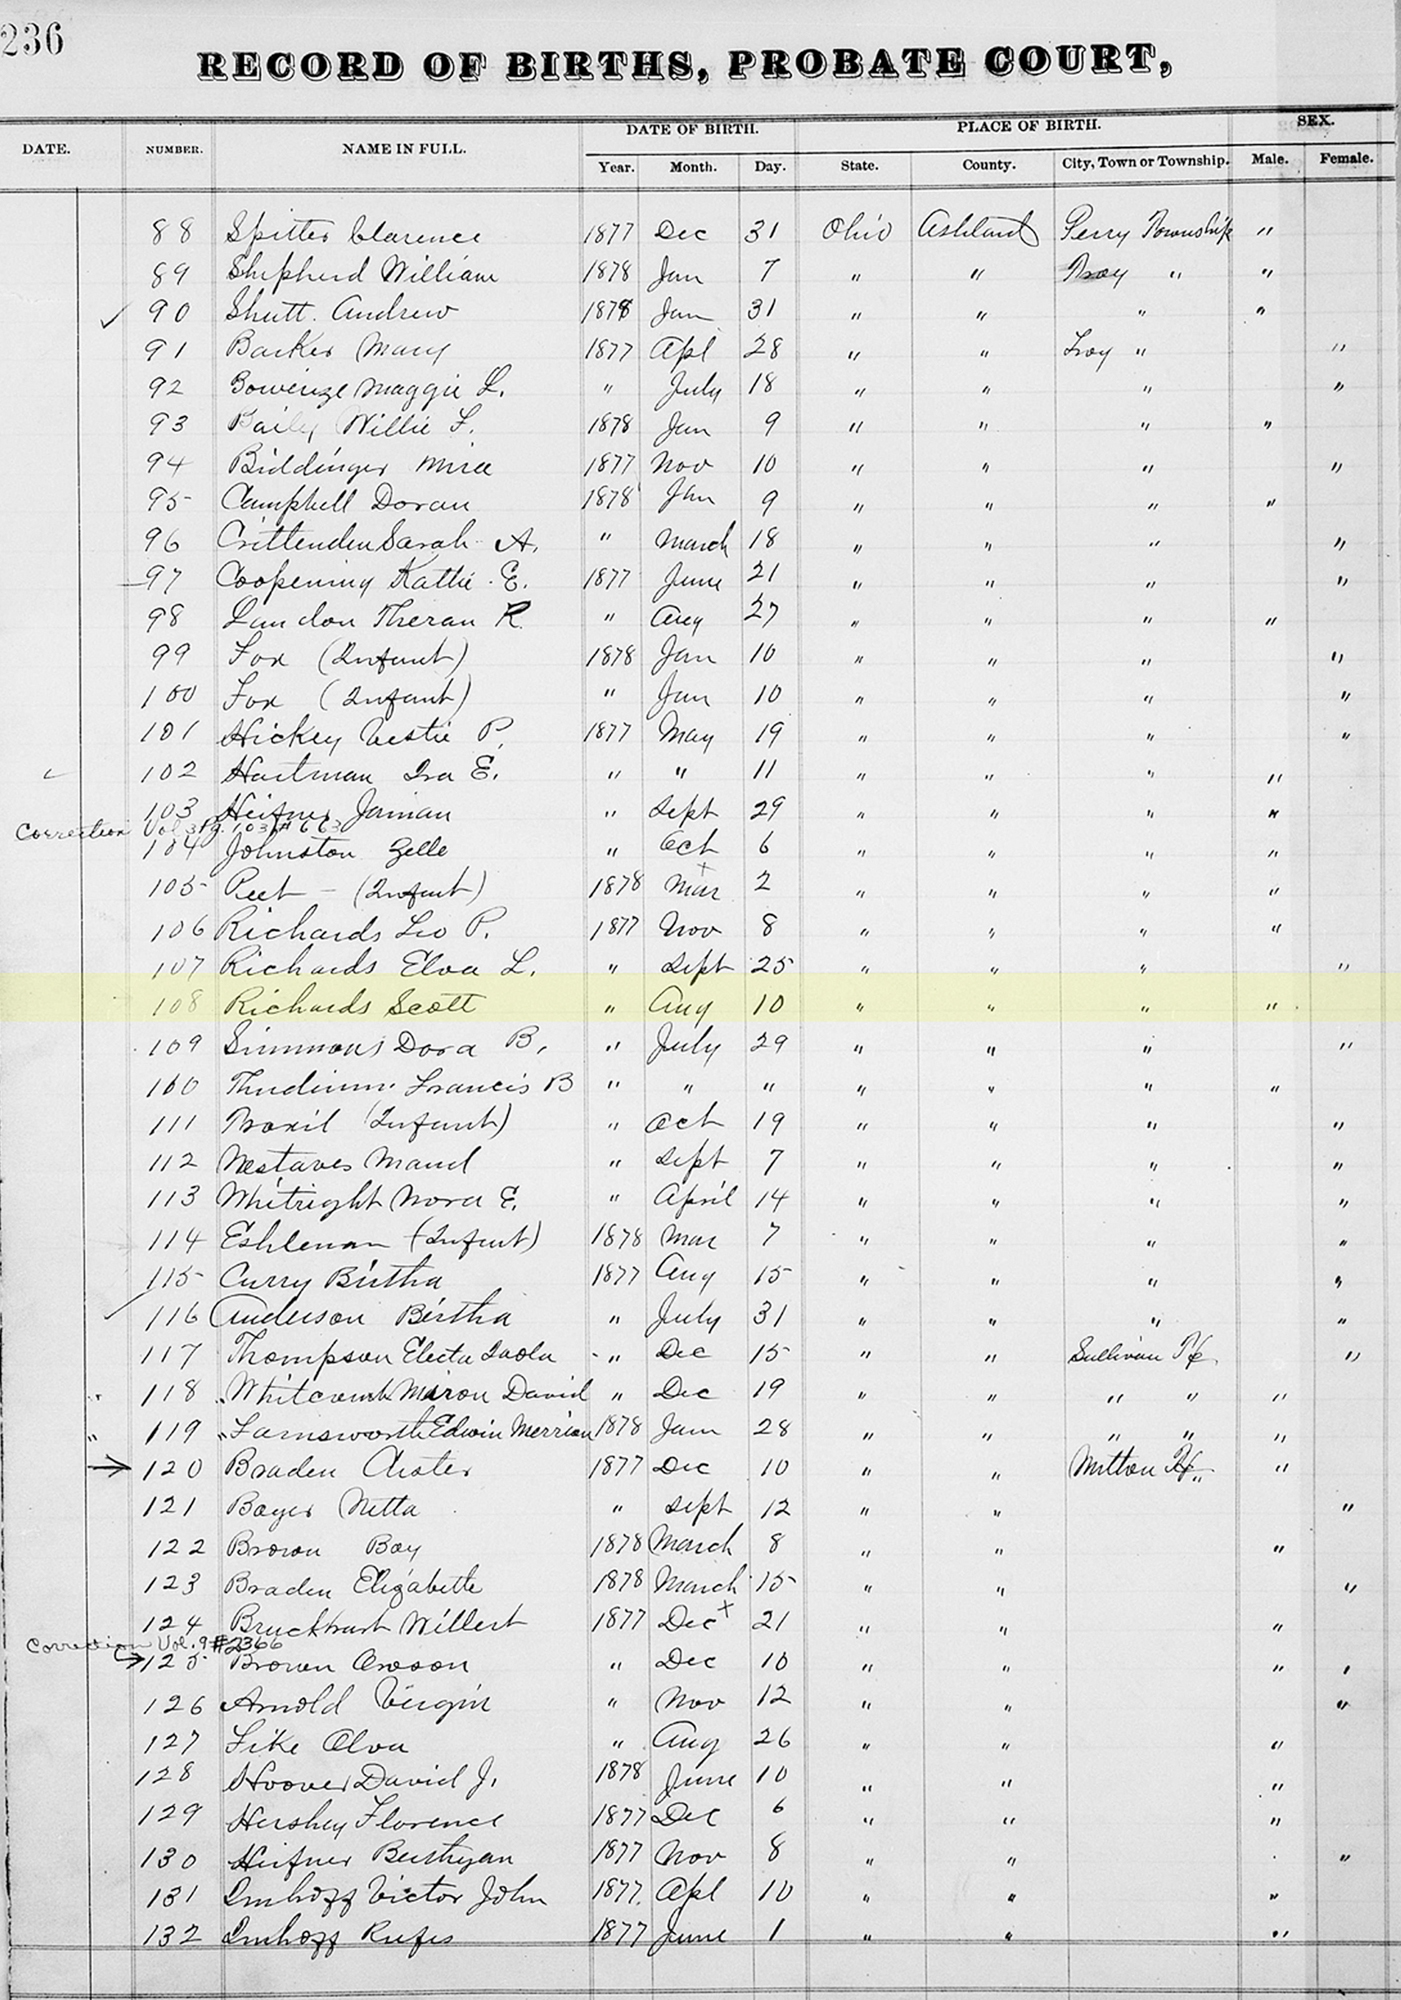 236
RECORD OF BIRTHS, PROBATE COURT,
DATE. NUMBER. NAME IN FULL. DATE OF BIRTH. PLACE OF BIRTH. SEX.
Year. Month. Day. State. County. City, Town or Township. Male. Female.
88 Spitter Clarence 1877 Dec 31 Ohio Ashland Perry Township "
89 Shepherd William 1878 Jan 7 " " Troy " "
90 Shutt. Andrew 1878 Jan 31 " " " "
91 Barker Mary 1877 Apl 28 " " Troy " "
92 Maggie L. " July 18 " " " "
93 Baily Willie F. 1878 Jan 9 " " " "
94 Biddinger Mira 1877 Nov 10 " " " "
95 Campbell Doran 1878 Jan 9 " " " "
96 Crittenden Sarah A. " March 18 " " " "
97 Coopening Kattie E. 1877 June 21 " " " "
98 Landon Theran R. " Aug 27 " " " "
99 Fox (Infant) 1878 Jan 10 " " " "
100 Fox (Infant) " Jan 10 " " " "
101 Hickey Vestie P. 1877 May 19 " " " "
102 Hartman Ira E. " " 11 " " " "
103 Heifner Jaman " Sept 29 " " " "
Correction Vol 3 Pg. 103 # 663
104 Johnston Zelle " Oct 6 " " " "
105 Peet - (Infant) 1878 Mar 2 " " " "
106 Richards Leo P. 1877 Nov 8 " " " "
107 Richards Elva L. " Sept 25 " " " "
108 Richards Scott " Aug 10 " " " "
109 Simmons Dora B. " July 29 " " " "
100 Thudium Francis B " " " " " " "
111 Troxil (Infant) " Oct 19 " " " "
112 Maud " Sept 7 " " " "
113 Whitright Nora E. " April 14 " " " "
114 Eshleman (Infant) 1878 Mar 7 " " " "
115 Curry Birtha 1877 Aug 15 " " " "
116 Anderson Birtha " July 31 " " " "
117 Thompson Electa Isola " Dec 15 " " Sullivan Tp "
118 Whitcomb Miron David " Dec 19 " " " " "
119 Farnsworth Edwin Merrian 1878 Jan 28 " " " " "
120 Braden Charter 1877 Dec 10 " " Milton Tp "
121 Boyer Netta " Sept 12 " " "
122 Brown Boy 1878 March 8 " " "
123 Braden Elizabeth 1878 March 15 " " "
124 Bruckhart Willert 1877 Dec 21 " " "
Correction Vol. 9 #2366
125 Brown Orason " Dec 10 " " " "
126 Arnold Virgin " Nov 12 " " "
127 Fike Alva " Aug 26 " " "
128 Hoover David J. 1878 June 10 " " "
129 Hershey Florence 1877 Dec 6 " " "
130 Heifner 1877 Nov 8 " " "
131 Imhoff Victor John 1877 Apl 10 " " "
132 Imhoff Rufis 1877 June 1 " " "